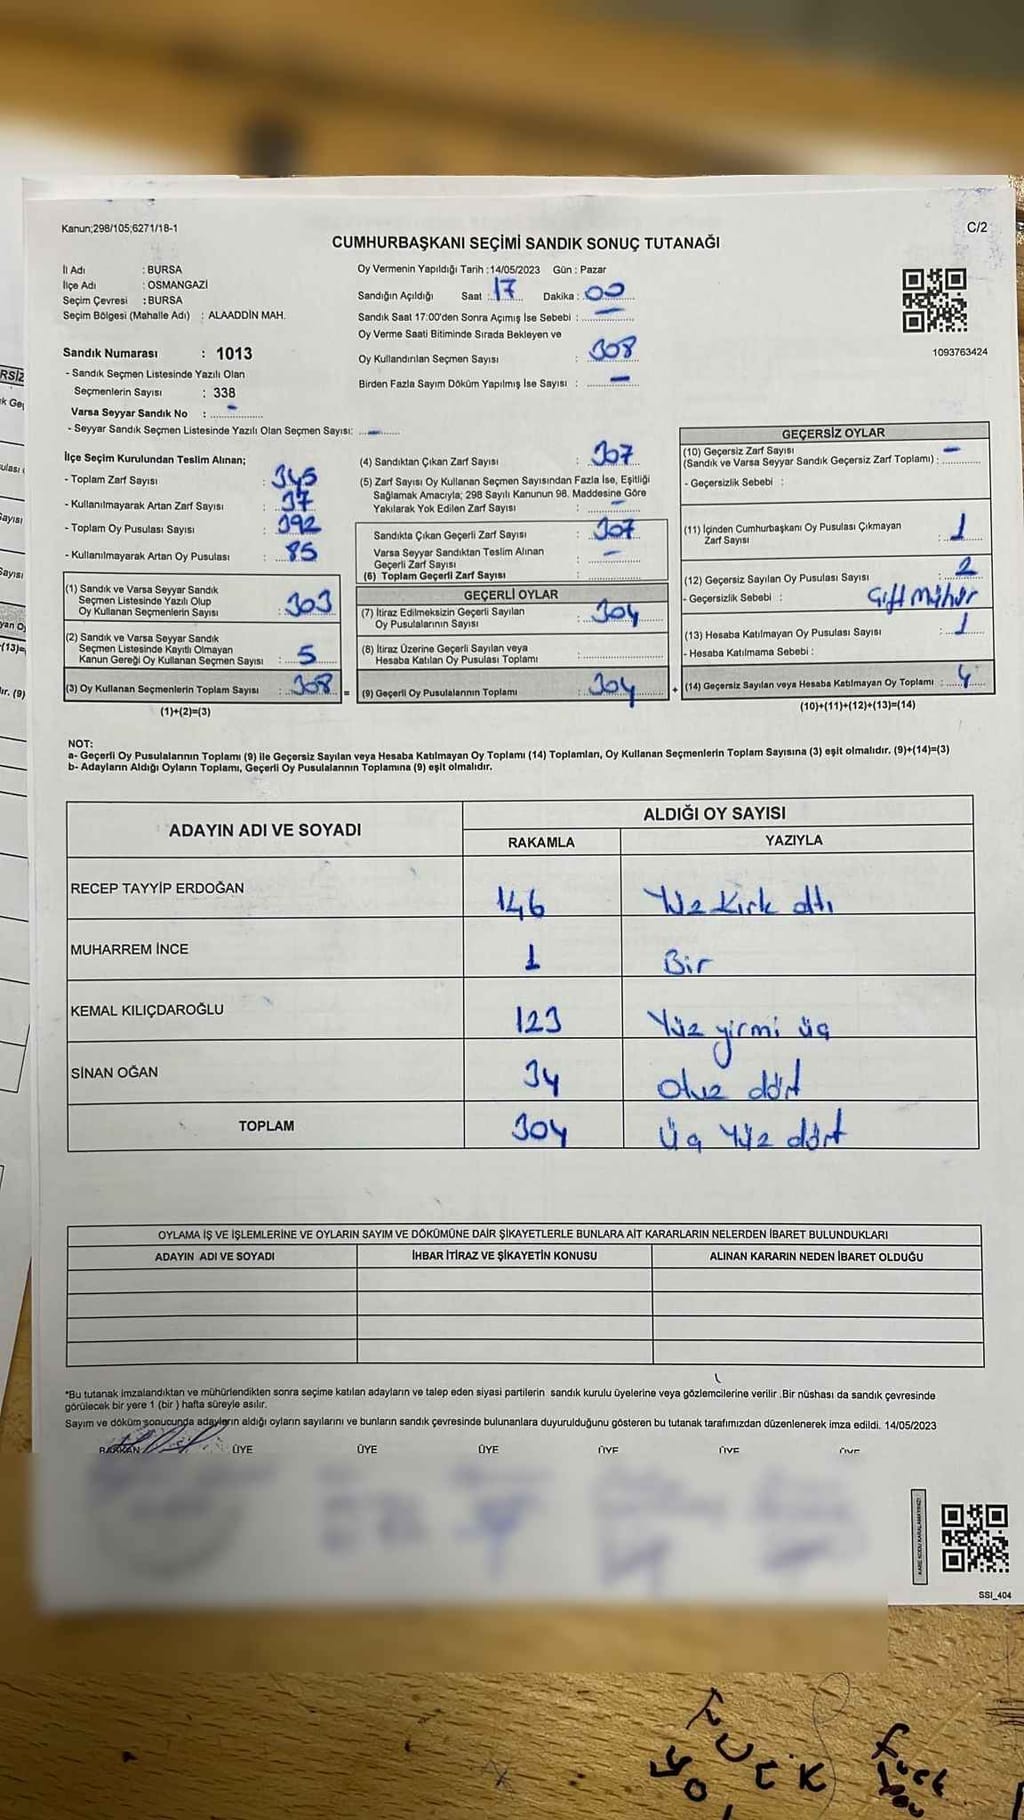 Kanun;298/105;6271/18-1
C/2
CUMHURBAŞKANI SEÇİMİ SANDIK SONUÇ TUTANAĞI
İl Adı : BURSA
İlçe Adı : OSMANGAZİ
Seçim Çevresi : BURSA
Seçim Bölgesi (Mahalle Adı) : ALAADDİN MAH.
Sandık Numarası : 1013
- Sandık Seçmen Listesinde Yazılı Olan
Seçmenlerin Sayısı : 338
Varsa Seyyar Sandık No : -
- Seyyar Sandık Seçmen Listesinde Yazılı Olan Seçmen Sayısı: -
Oy Vermenin Yapıldığı Tarih : 14/05/2023 Gün : Pazar
Sandığın Açıldığı Saat : 17 Dakika : 00
Sandık Saat 17:00'den Sonra Açımış İse Sebebi : -
Oy Verme Saati Bitiminde Sırada Bekleyen ve
Oy Kullandırılan Seçmen Sayısı : 308
Birden Fazla Sayım Döküm Yapılmış İse Sayısı : -
1093763424
İlçe Seçim Kurulundan Teslim Alınan;
- Toplam Zarf Sayısı : 345
- Kullanılmayarak Artan Zarf Sayısı : 37
- Toplom Oy Pusulası Sayısı : 392
- Kullanılmayarak Artan Oy Pusulası : 85
(1) Sandık ve Varsa Seyyar Sandık
Seçmen Listesinde Yazılı Olup
Oy Kullanan Seçmenlerin Sayısı : 303
(2) Sandık ve Varsa Seyyar Sandık
Seçmen Listesinde Kayıtlı Olmayan
Kanun Gereği Oy Kullanan Seçmen Sayısı : 5
(3) Oy Kullanan Seçmenlerin Toplam Sayısı : 308 =
(1)+(2)=(3)
(4) Sandıktan Çıkan Zarf Sayısı : 307
(5) Zarf Sayısı Oy Kullanan Seçmen Sayısından Fazla İse, Eşitliği
Sağlamak Amacıyla; 298 Sayılı Kanunun 98. Maddesine Göre
Yakılarak Yok Edilen Zarf Sayısı : -
Sandıkta Çıkan Geçerli Zarf Sayısı : 307
Varsa Seyyar Sandıktan Teslim Alınan
Geçerli Zarf Sayısı : -
(6) Toplam Geçerli Zarf Sayısı :
GEÇERLİ OYLAR
(7) İtiraz Edilmeksizin Geçerli Sayılan
Oy Pusulalarının Sayısı : 304
(8) İtiraz Üzerine Geçerli Sayılan veya
Hesaba Katılan Oy Pusulası Toplamı :
(9) Geçerli Oy Pusulalarının Toplamı : 304 +
GEÇERSİZ OYLAR
(10) Geçersiz Zarf Sayısı
(Sandık ve Varsa Seyyar Sandık Geçersiz Zarf Toplamı) : -
- Geçersizlik Sebebi :
(11) İçinden Cumhurbaşkanı Oy Pusulası Çıkmayan
Zarf Sayısı : 1
(12) Geçersiz Sayılan Oy Pusulası Sayısı : 2
- Geçersizlik Sebebi : Çift Mühür
(13) Hesaba Katılmayan Oy Pusulası Sayısı : 1
- Hesaba Katılmama Sebebi :
(14) Geçersiz Sayılan veya Hesaba Katılmayan Oy Toplamı : 4
(10)+(11)+(12)+(13)=(14)
NOT:
a- Geçerli Oy Pusulalarının Toplamı (9) ile Geçersiz Sayılan veya Hesaba Katılmayan Oy Toplamı (14) Toplamları, Oy Kullanan Seçmenlerin Toplam Sayısına (3) eşit olmalıdır. (9)+(14)=(3)
b- Adayların Aldığı Oyların Toplamı, Geçerli Oy Pusulalarının Toplamına (9) eşit olmalıdır.
ADAYIN ADI VE SOYADI
ALDIĞI OY SAYISI
RAKAMLA YAZIYLA
RECEP TAYYİP ERDOĞAN 146 Yüz Kırk altı
MUHARREM İNCE 1 Bir
KEMAL KILIÇDAROĞLU 123 Yüz yirmi üç
SİNAN OĞAN 34 otuz dört
TOPLAM 304 Üç Yüz dört
OYLAMA İŞ VE İŞLEMLERİNE VE OYLARIN SAYIM VE DÖKÜMÜNE DAİR ŞİKAYETLERLE BUNLARA AİT KARARLARIN NELERDEN İBARET BULUNDUKLARI
ADAYIN ADI VE SOYADI İHBAR İTİRAZ VE ŞİKAYETİN KONUSU ALINAN KARARIN NEDEN İBARET OLDUĞU
*Bu tutanak imzalandıktan ve mühürlendikten sonra seçime katılan adayların ve talep eden siyasi partilerin sandık kurulu üyelerine veya gözlemcilerine verilir .Bir nüshası da sandık çevresinde
görülecek bir yere 1 (bir ) hafta süreyle asılır.
Sayım ve döküm sonucunda adayların aldığı oyların sayılarını ve bunların sandık çevresinde bulunanlara duyurulduğunu gösteren bu tutanak tarafımızdan düzenlenerek imza edildi. 14/05/2023
BAŞKAN ÜYE ÜYE ÜYE ÜYE ÜYE ÜYE
SSI_404
FUCK